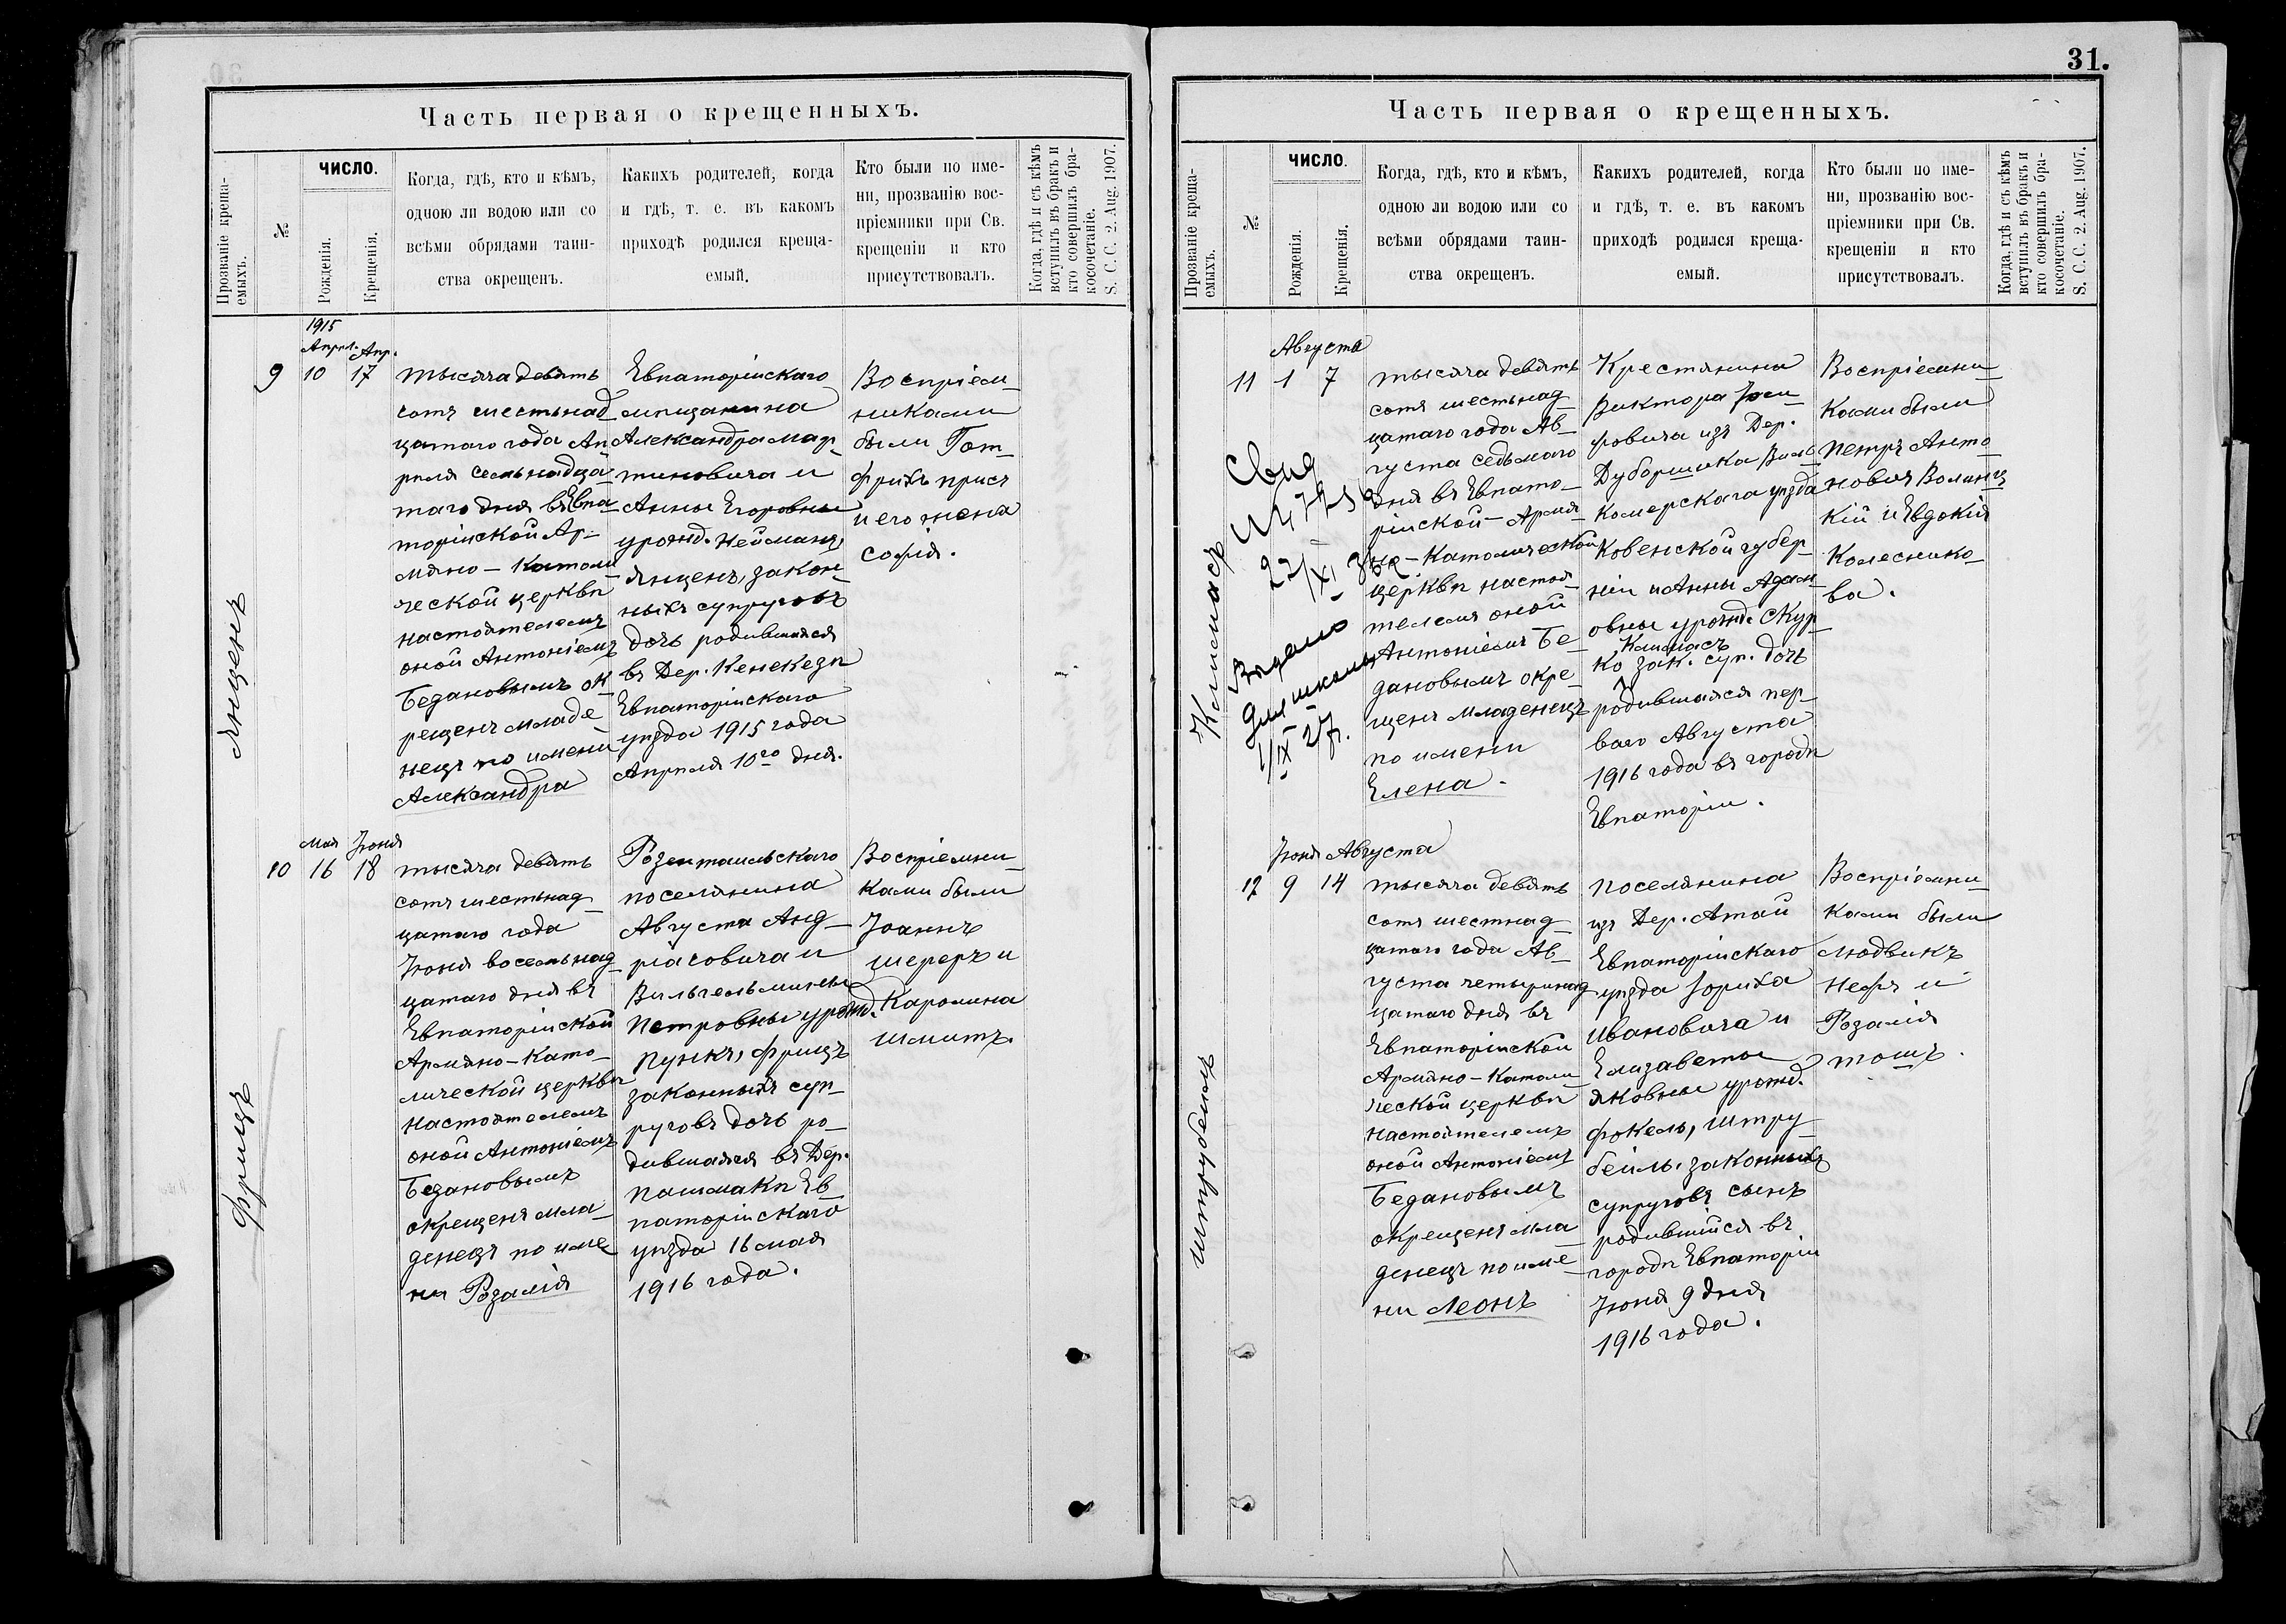 Часть первая о крещенныхъ.
Прозваніе креща-
емыхъ.
№
ЧИСЛО.
Рожденія.
Крещенія.
Когда, гдѣ, кто и кѣмъ,
одною ли водою или со
всѣми обрядами таин-
ства окрещенъ.
Какихъ родителей, когда
и гдѣ, т. е. въ какомъ
приходѣ родился креща-
емый.
Кто были по име-
ни, прозванію вос-
пріемники при Св.
крещеніи и кто
присутствовалъ.
Когда, гдѣ и съ кѣмъ
вступилъ въ бракъ и
кто совершилъ бра-
косочетаніе.
S. C. C. 2. Aug. 1907.
Янценъ
1915
Апрл. Апр.
9 10 17
тысяча девять
сотъ шестьнад
цатаго года Ап
рѣля семьнадца
таго дня въ Евпа
торійской Ар-
мяно-Католи
ческой церкви
настоятелемъ
оной Антоніемъ
Бедановымъ ок
рещенъ младе
нецъ по имени
Александра
Евпаторійскаго
мѣщанина
Александра Мар
тиновича и
Анны Егоровны
урожд. Нейманъ,
Янценъ, закон
ныхъ супруговъ
дочь родившаяся
въ Дер. Кенекезѣ
Евпаторійскаго
уѣзда 1915 года
Апрѣля 10го дня.
Воспріем
никами
были Гот
фридъ
и его жена
Софія.
Фрицъ
Мая Іюня
10 16 18
тысяча девять
сотъ шестьнад
цатаго года
Іюня восемьнад
цатаго дня въ
Евпаторійской
Армяно-Като-
лической церкви
настоятелемъ
оной Антоніемъ
Бедановымъ
окрещенъ мла
денецъ по име
ни Розалія
Розентальскаго
поселянина
Августа Анд
ріасовича и
Вильгельмины
Петровны урожд.
Пункъ, Фрицъ
законныхъ суп-
руговъ дочь ро-
дившаяся въ Дер.
Пашмакѣ Ев
паторійскаго
уѣзда 16 мая
1916 года.
Воспріемни
ками были
Іоаннъ
Шереръ и
Каролина
Шмитъ.
31.
Часть первая о крещенныхъ.
Прозваніе креща-
емыхъ.
№
ЧИСЛО.
Рожденія.
Крещенія.
Когда, гдѣ, кто и кѣмъ,
одною ли водою или со
всѣми обрядами таин-
ства окрещенъ.
Какихъ родителей, когда
и гдѣ, т. е. въ какомъ
приходѣ родился креща-
емый.
Кто были по име-
ни, прозванію вос-
пріемники при Св.
крещеніи и кто
присутствовалъ.
Когда, гдѣ и съ кѣмъ
вступилъ въ бракъ и
кто совершилъ бра-
косочетаніе.
S. C. C. 2. Aug. 1907.
Свид
22/XI
Выдано
для школы
1/IX 27 г.
Августа
11 1 7
тысяча девять
сотъ шестьнад
цатаго года Ав-
густа седьмаго
дня въ Евпато-
рійской-Армя
но-Католической
церкви настоя
телемъ оной
Антоніемъ Бе
дановымъ окре-
щенъ младенецъ
по имени
Елена.
Крестянина
Виктора Іоси
фовича изъ Дер.
Ковенской губер
ніи и Анны Адам
овны урожд. Скур
ко зак. суп. дочь
родившаяся пер
ваго Августа
1916 года въ городѣ
Евпаторіи.
Воспріемни
ками были
Петръ Анто
новъ
кій и Евдокія
Колеснико
ва.
Штрубейль
Іюня Августа
12 9 14
тысяча девять
сотъ шестнад
цатаго года Ав-
густа четырнад
цатаго дня въ
Евпаторійской
Армяно-Католи
ческой церкви
настоятелемъ
оной Антоніемъ
Бедановымъ
окрещенъ мла
денецъ по име
ни Леонъ
поселянина
изъ Дер. Атай
Евпаторійскаго
уѣзда Іориха
Ивановича и
Елизаветы
Яковны урожд.
Фокель, Штру
бейль, законныхъ
супруговъ сынъ
родившійся въ
городѣ Евпаторіи
Іюня 9 дня
1916 года.
Воспріемни
ками были
Людвикъ
Нефъ и
Розалія
Тошъ.